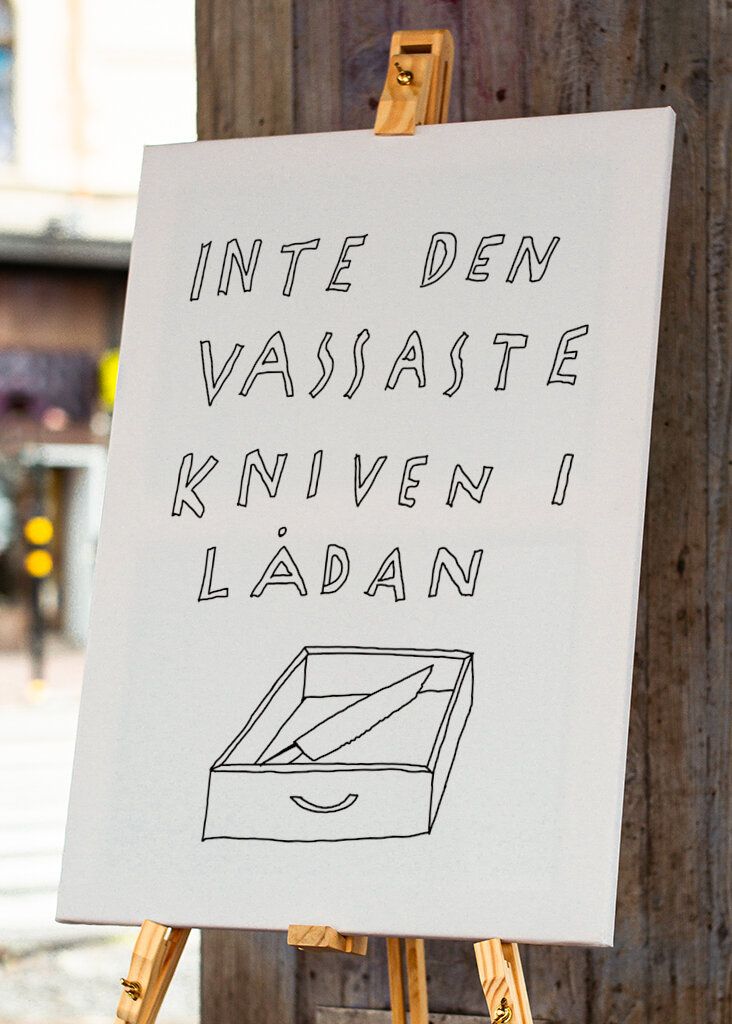 INTE DEN
VASSASTE
KNIVEN I
LÅDAN